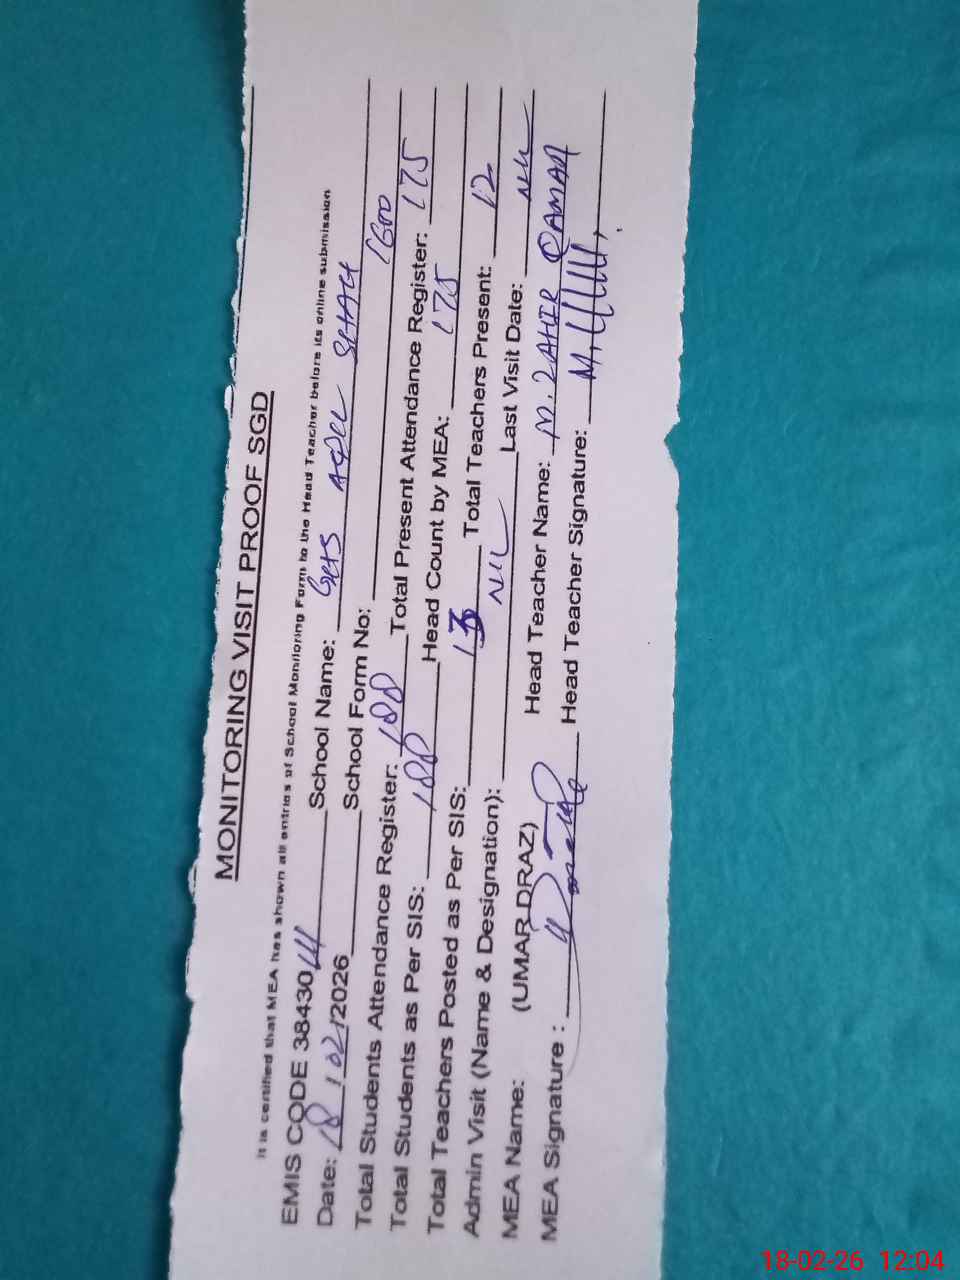 MONITORING VISIT PROOF SGD
It is certified that MEA has shown all entries of School Monitoring Form to the Head Teacher before its online submission
EMIS CODE 38430 School Name: GHS SHAH
Date: 18/02/2026 School Form No:
Total Students Attendance Register: 188 Total Present Attendance Register: 175
Total Students as Per SIS: 188 Head Count by MEA: 175
Total Teachers Posted as Per SIS: 13 Total Teachers Present: 12
Admin Visit (Name & Designation): NIL Last Visit Date: NIL
MEA Name: (UMAR DRAZ) Head Teacher Name: M. ZAHIR QAMAR
MEA Signature : Head Teacher Signature:
18-02-26 12:04